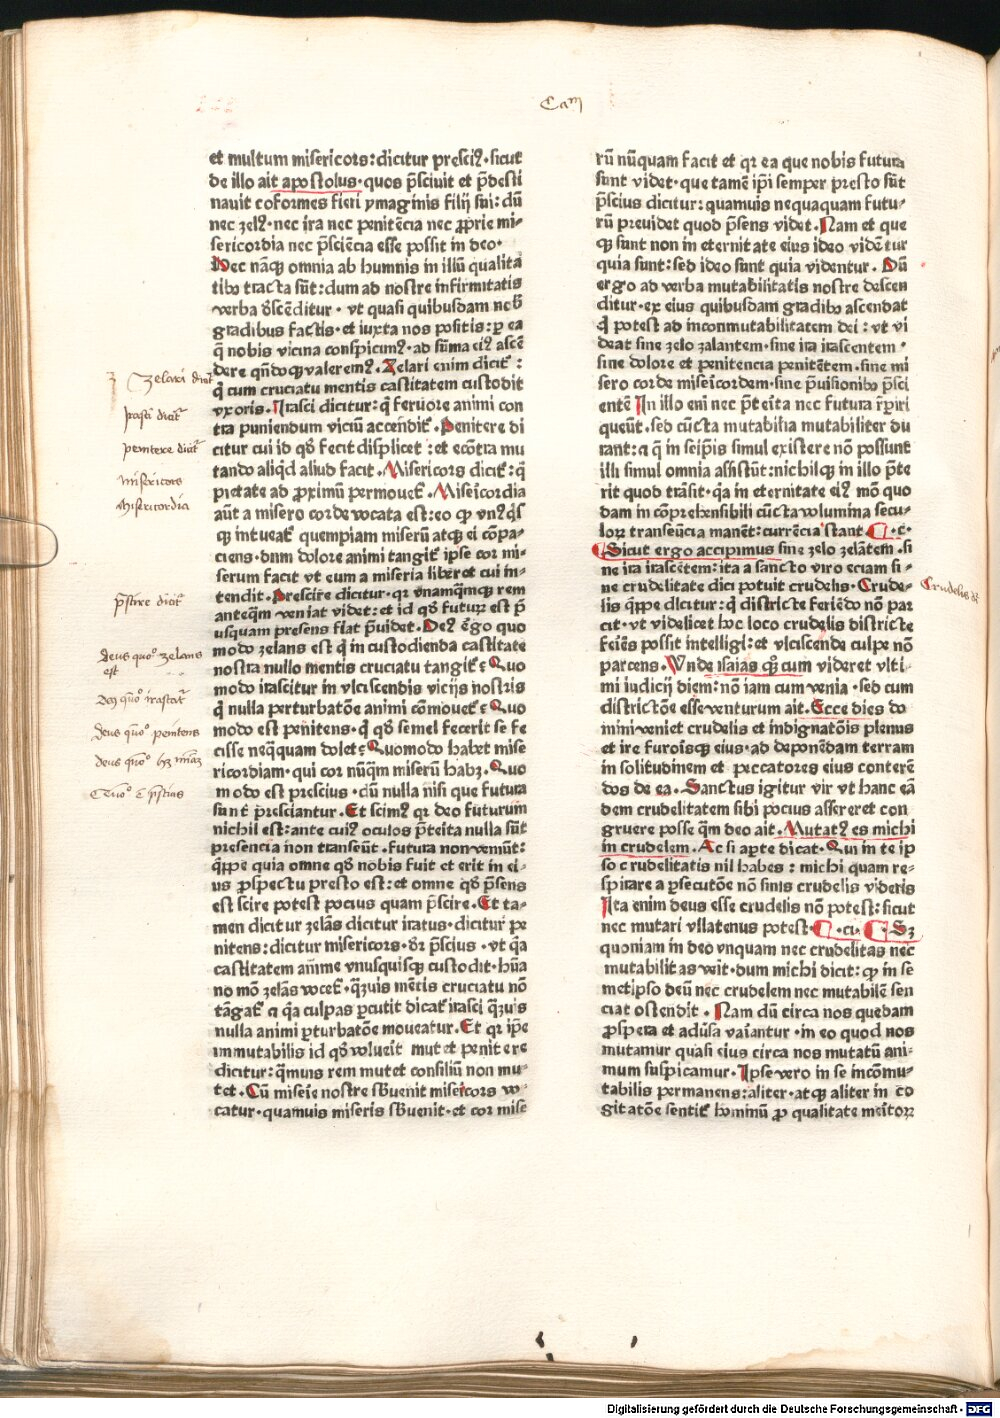 Cam
et multum misericors:dicitur presciꝰ·sicut
de illo ait apostolus·quos p̄sciuit et p̄desti
nauit coformes fieri ymaginis filij sui:dū
nec zelꝰ·nec ira nec penitēcia nec ꝓprie mi⸗
sericordia nec p̄sciēcia esse possit in deo·
Nec nāqꝫ omnia ab humnis in illū qualita
tibꝰ tracta sūt:dum ad nostre infirmitatis
verba dscēditur·vt quasi quibusdam nob
gradibus factis·et iuxta nos positis:ꝑ ea
q̄ nobis vicina conspicimꝰ·ad sūma eiꝰ ascē
dere qn̄doqꝫ valeremꝰ. Zelari enim dicit᷑:
q̄ cum cruciatu mentis castitatem custodit
vxoris. Irasci dicitur:q̄ feruore animi con
tra puniendum viciū accendit᷑. Penitere di
citur cui id qd̄ fecit displicet:et ecōtra mu
tando aliqd̄ aliud facit. Misericors dicit᷑:q̄
pietate ad ꝓximū permouet᷑. Miseicordia
aūt a misero corde vocata est:eo ꝙ vnꝰqͥsqꝫ
intueat᷑ quempiam miserū atqꝫ ei cōpa⸗
ciens·dum dolore animi tangit᷑ ipse cor mi⸗
serum facit vt eum a miseria liberet cui in⸗
tendit. Prescire dicitur·qr vnamqm̄qꝫ rem
anteqm̄ veniat videt:et id qd̄ futurꝝ est p̄
usquam presens fiat p̄uidet. Deꝰ ēgo quo
modo zelans est q̄ in custodienda castitate
nostra nullo mentis cruciatu tangit᷑? Quo
modo irascitur in vlciscendis vicijs nostris
q̄ nulla perturbatōe animi cōmouet᷑? Quo
modo est penitens·q̄ qd̄ semel fecerit se fe
cisse neq̄quam dolet? Quomodo habet mise
ricordiam·qui cor nūqm̄ miserū habꝫ. Quo
modo est prescius·dū nulla nisi que futura
sunt presciantur. Et scimꝰ qr deo futurum
nichil est:ante cuiꝰ oculos p̄teita nulla sūt
presencia non transeūt·futura non veniūt:
q̄ppe quia omne qd̄ nobis fuit et erit in ei⸗
us ꝓspectu presto est:et omne qd̄ p̄sens
est scire potest pocius quam p̄scire. Et ta⸗
men dicitur zelās dicitur iratus·dicitur pe
nitens:dicitur misericors·dr̄ p̄scius·vt q̄a
castitatem anime vnusquisqꝫ custodit·hūa
no mō zelās vocet᷑·q̄ꝫuis mētis cruciatu nō
tāgat᷑ a q̄a culpas ꝑcutit dicat᷑ irasci q̄ꝫuis
nulla animi ꝑturbatōe moueatur. Et qr ip̄e
immutabilis id qd̄ voluerit mutet penitere
dicitur:q̄muis rem mutet consiliū non mu⸗
tet. Cū miseie nostre sb̄uenit misericors vo⸗
catur·quamuis miseris sb̄uenit·et cor mise
Zelari dicit᷑
Irasci dicit᷑
penitere dicit᷑
misericors
Misericordia
p̄scire dicit᷑
deus quoº zelans
est
deꝰ quōº irascat᷑
deus quōº penitens
deus quōº hꝫ mīam
rū nūquam facit et qr ea que nobis futura
sunt videt·que tamē ip̄i semper presto sūt
p̄scius dicitur:quamuis nequaquam futu⸗
rū preuidet quod p̄sens videt. Nam et que
qꝫ sunt non in eternitate eius ideo vidētur
quia sunt:sed ideo sunt quia videntur. Dū
ergo ad verba mutabilitatis nostre descen
ditur·ex eius quibusdam gradibꝰ ascendat
q̄ potest ad inconmutabilitatem dei:vt vi
deat sine zelo zalantem·sine ira irascentem·
sine dolore et penitencia penitētem·sine mi
sero corde miseicordem·sine p̄uisionibꝰ p̄sci
entē In illo eni nec p̄teita nec futura r̄piri
queūt·sed cūcta mutabilia mutabiliter du
rant:a q̄ in seip̄is simul existere nō possunt
illi simul omnia assistūt:nichilqꝫ in illo p̄te
rit quod trāsit·q̄a in eternitate eiꝰ mō quo
dam incōprehensibili cūcta volumina secu⸗
loꝝ transeūcia manēt:currēcia stant ¶·c·
¶Sicut ergo accipimus sine zelo zelātem·si
ne ira irascētem:ita a sancto viro eciam si⸗
ne crudelitate dici potuit crudelis. Crude⸗
lis q̄ppe dicitur:q̄ districte feriēdo nō par
cit·vt videlicet hoc loco crudelis districte
feiēs possit intelligi:et vlciscende culpe nō
parcens. Vnde isaias qꝫ cum videret vlti⸗
mi iudicij diem:nō iam cum venia·sed cum
districtōe esse venturum ait. Ecce dies do
mini veniet crudelis et indignatōis plenus
et ire furoisqꝫ eius·ad deponēdam terram
in solitudinem et peccatores eius conterē
dos de ea. Sanctus igitur vir vt hanc eā
dem crudelitatem sibi pocius assereret con
gruere posse qm̄ deo ait. Mutatꝰ es michi
in crudelem. Ac si aꝑte dicat. Qui in te ip
so crudelitatis nil habes:michi quam re⸗
spirare a ꝑsecutōe nō sinis crudelis videris
Ita enim deus esse crudelis nō potest:sicut
nec mutari vllatenus potest ¶·ci. ¶ Sꝫ
quoniam in deo vnquam nec crudelitas nec
mutabilitas veit·dum michi dicit:ꝙ in se
metipso deū nec crudelem nec mutabilē sen
ciat ostendit. Nam dū circa nos quedam
ꝓspera et adūsa vaīantur·in eo quod nos
mutamur quasi eius circa nos mutatū ani⸗
mum suspicamur. Ipse vero in se incōmu⸗
tabilis permanens:aliter·atqꝫ aliter in co
gitatōe sentit᷑ hominū ꝓ qualitate meitoꝝ
Crudelis dr̄
Digitalisierung gefördert durch die Deutsche Forschungsgemeinschaft - DFG